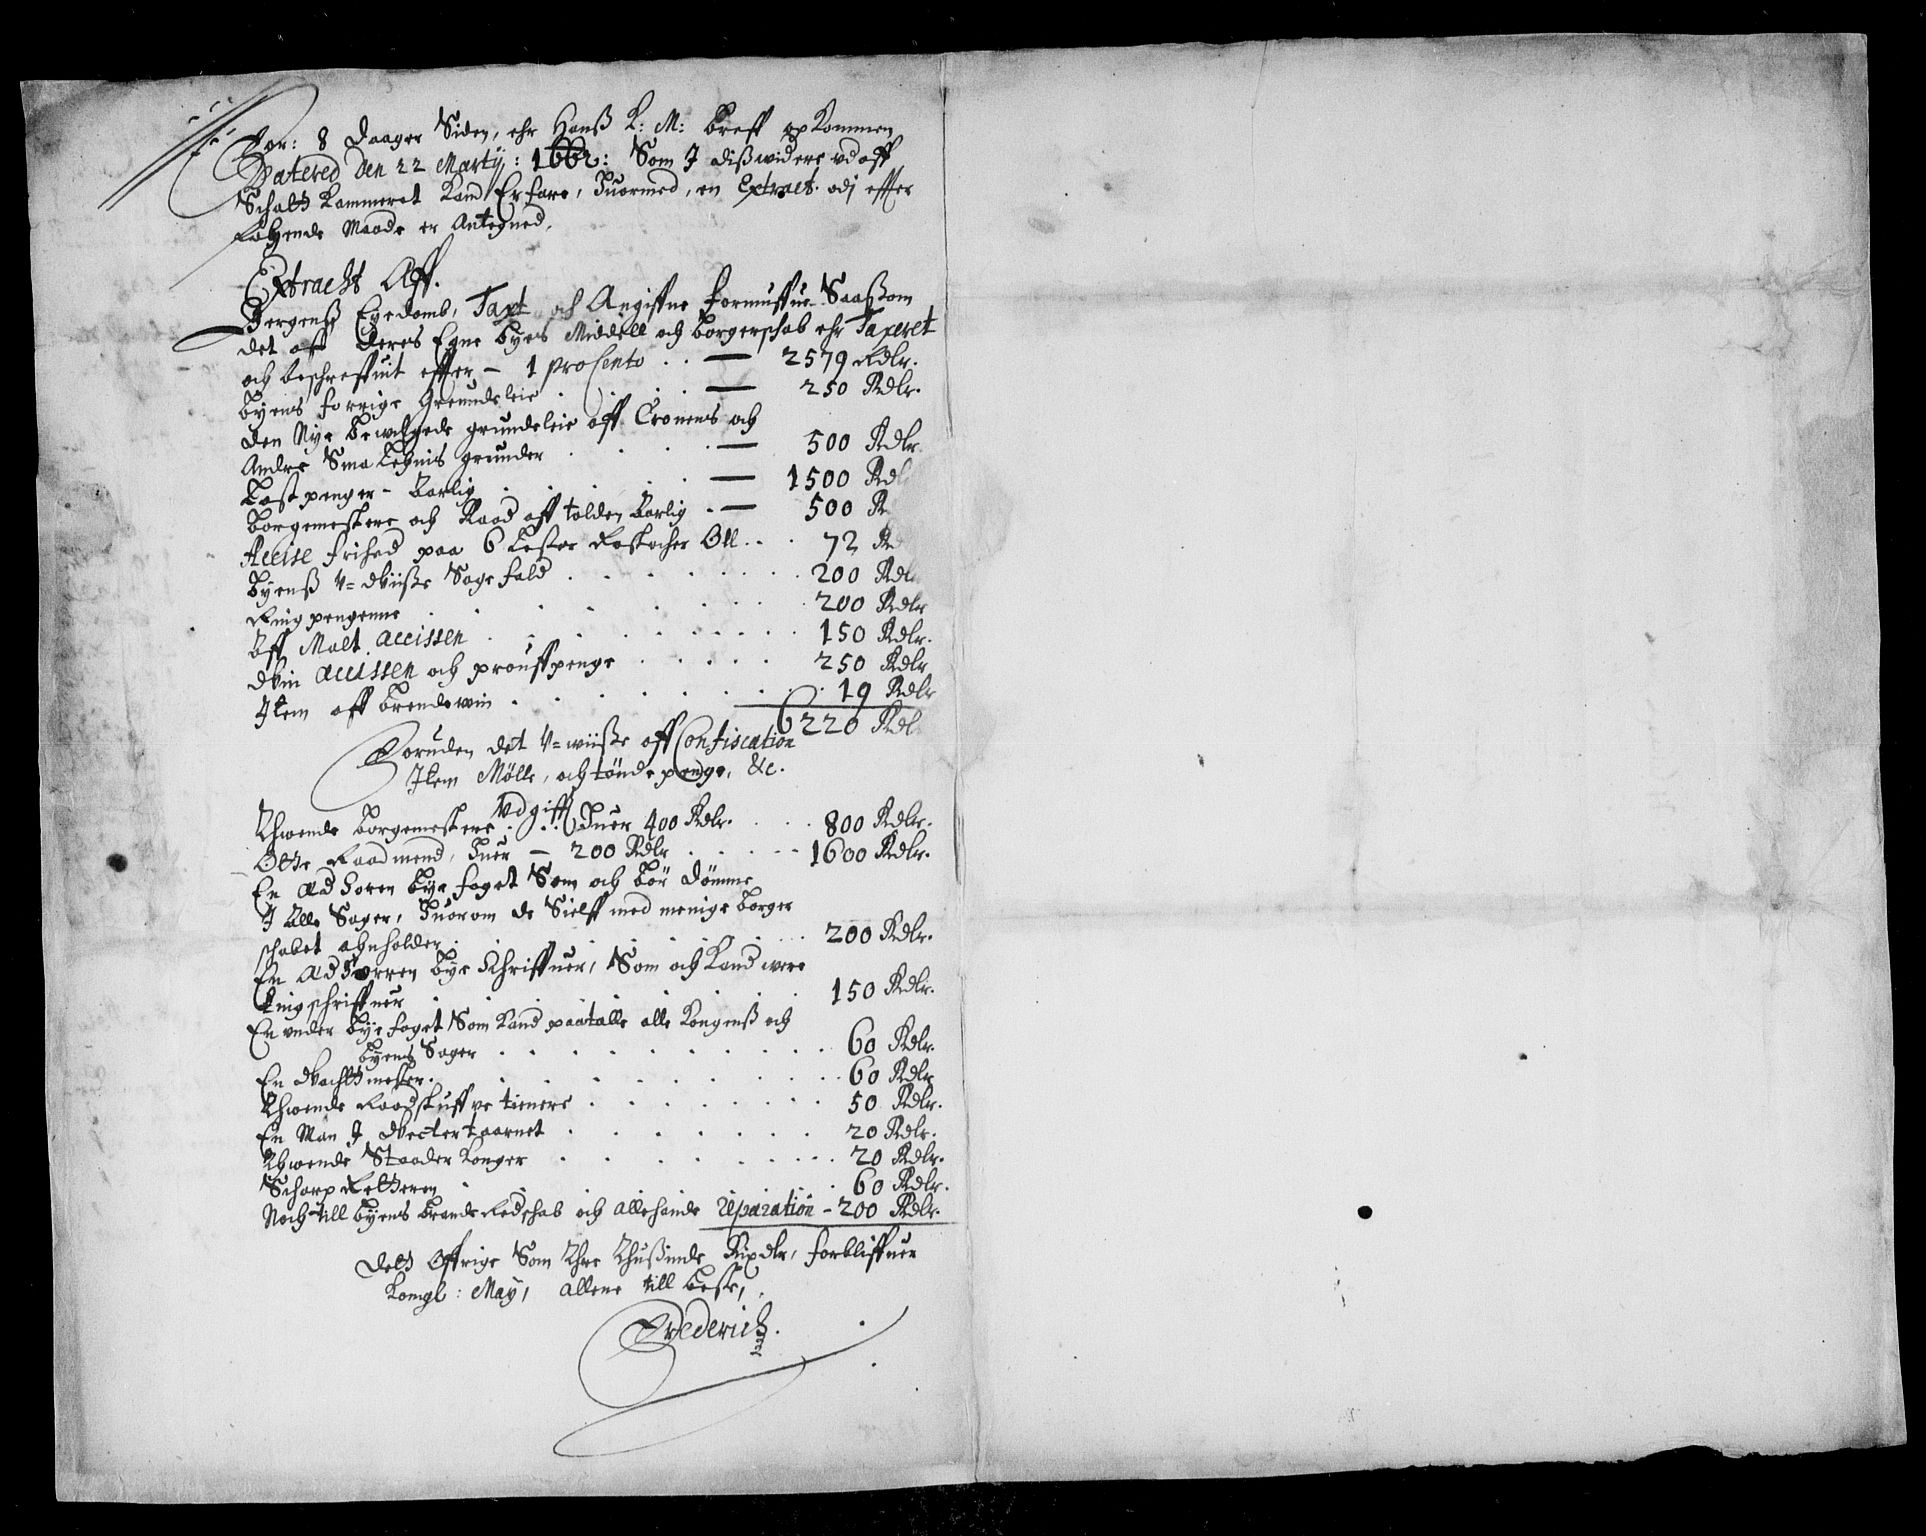 For: 8 Daager Siden, ehr Hanß K: M: breff opkommen
Datered den 22 Martij: 1662: Som J dißwidere vdaff
Schatt Kammeret kand Erfare, Huormed, en Extract. odj effter
følgende Maade er Antegned,
Extracht Aff.
Bergenß Eyedomb, Taxt och Angiffne formuffue Saasom
det aff deres Egne byes Middell och borgerschab ehr Taxeret
och beschreffuit effter – 1 procento . . — 2579 Rdlr.
byens forrige Grundeleie . . . . — 250 Rdlr.
den Nye bewilgede grundeleie aff Cronens och
Andre Sma Lehnis grunder . . . . — 500 Rdlr.
Lastpenger – Aarlig . . . . — 1500 Rdl
borgemestere och Raad aff tolden Aarlig . — 500 R
Accise frihed paa 6 Lester Rostocher Øll . . . 72 Rd
byenß V=dviiße Sagefald . . . . . . . 200 Rdl
Ringpengenne . . . . . . . 200 Rdlr
Aff Malt accissen . . . . . . . . 150 Rdlr.
dvin accissen och prouffpenge . . . . . 250 Rdlr
Jtem aff brendewin . . . . . . . 19 Rdlr
6220 Rdl
Foruden det V=wiiße aff Confiscation
Jtem Mølle, och tønde penge, &c.
Vdgifft
Thuende borgemestere . . . Huer 400 Rdlr. . . . 800 Rdlr.
Otte Raadmend, Huer – 200 Rdlr . . . . 1600 Rdlr.
En Ad Soren bye foget Som och bør dømme
J Alle Sager, Huorom de Sielff med menige borger
schabet ahnholder . . . . . . . 200 Rdlr.
En Ad Sorren bye Schriffuer, Som och Kand were
tingschriffuer . . . . . . 150 Rdlr.
En vnder bye foget Som kand paatalle alle Kongenß och
byens Sager . . . . . . . . . 60 Rdlr.
En dvachtmester . . . . . . . . . 60 Rdlr
Thuende Raadstuffue tienere . . . . . . . 50 Rdlr.
En Man J dvectertaarnet . . . . . . 20 Rdlr.
Thuende Staader konger . . . . . . . 20 Rdlr.
Scharp Retteren . . . . . . . 60 Rdlr.
Noch till byens brandeRedschab och allehande Reparation – 200 Rdlr.
Dett Øffrige Som Thre Thusinde Rixdlr, forbliffuer
Kongl: May, allene till beste,
Frederich.